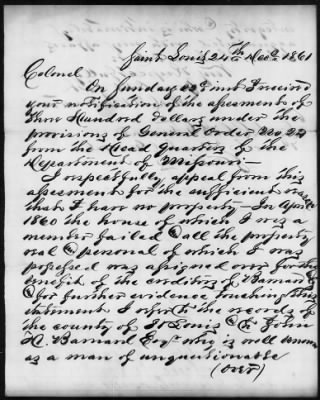 Saint Louis 24th Decr 1861
Colonel
On Sunday 22d inst I received
your notification of the assesments of
Three Hundred dollars under the
provisions of General Order No 24
from the Head Quarters of the
Department of Missouri—
I respectfully appeal from this
assesment for the sufficient reason
that I have no property— In April
1860 the house of which I was a
member failed & all the property
real & personal of which I was
possessed was assigned over for the
benefit of the creditors of Barnard
& for further evidence touching this
statement I refer to the records of
the county of St Louis & to John
H. Barnard Esqr who is well known
as a man of unquestionable
(over)